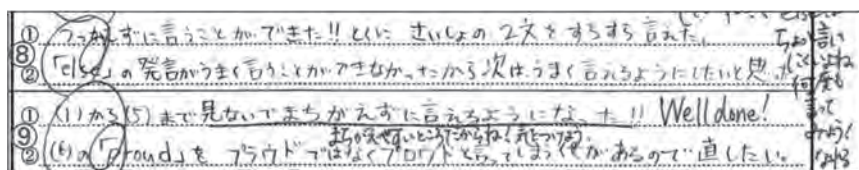 ⑧ ① つっかえずに言うことができた!! とくに さいしょの 2文をすらすら 言えた。
② 「else」の発言がうまく言うことができなかったから次はうまく言えるようにしたいと思った
言い
にくいよね
何度も
言って
みよう
⑨ ① (1)から(5)まで見ないでまちがえずに言えるようになった!! Well done!
まちがえやすいところだからね!気をつけよう。
② (6)の「proud」を プラウドではなくプロウドと言ってしまうくせがあるので直したい。